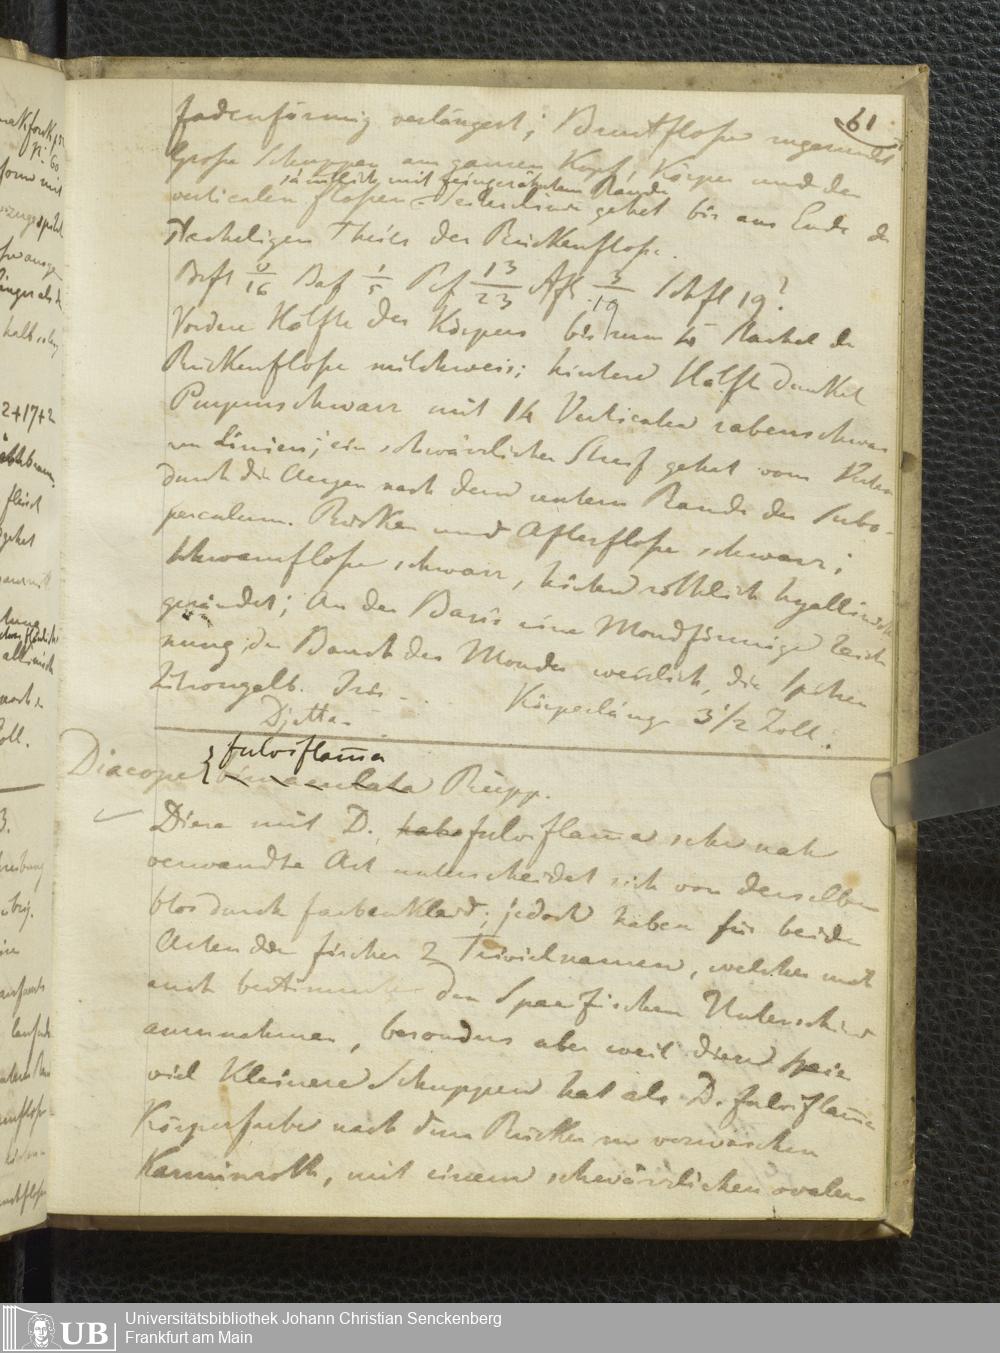 61
fadenförmig verlängert; Brustflosse zugerundet
Große Schuppen am ganzen Kopf, Körper und den
sämtlich mit feingezähntem Rande
verticalen flossen Seitenlinie gehet bis ans Ende des
stacheligen Theils der Rückenflosse.
Brfl 0/16 Baf 1/5 Rcf 13/23 Afl. 3/19 Schfl 19?
Vordere Hälfte des Körpers bis zum Stachel der
Rückenflosse milchweis; hintere Hälfte dunkel
Purpurschwarz mit 14 Verticalen rabenschwar
zen Linien; ein schwärzlicher Streif gehet vom
durch die Augen nach dem untern Rande des Subo-
perculum. Rücken und Afterflosse schwarz;
Schwanzflosse schwarz, hinten röthlich hyallinisch
gerändet; An der Basis eine Mondförmige Zeich
nung, der Bauch des Mondes weislich, die Spitzen
Zitrongelb. Iris - Körperlänge 3 1/2 Zoll.
Djetta-
fulviflamma
Diacope bimaculata Rüpp.
Diese mit D. fulviflamma sehr nah
verwandte Art unterscheidet sich von derselben
blos durch farbenkleid; jedoch haben für beide
Arten die fischer 2 Trivialnamen, welches mich
auch bestimmte den Specifischen Unterschied
anzunehmen, besonders aber weil diese
viel Kleinere Schuppen hat als D. fulviflamma
Körperfarbe nach dem Rücken zu verwaschen
Karminroth, mit einem schwärzlichen ovalen
2+17+2
fleisch
gehet
Zoll.
UB
Universitätsbibliothek Johann Christian Senckenberg
Frankfurt am Main